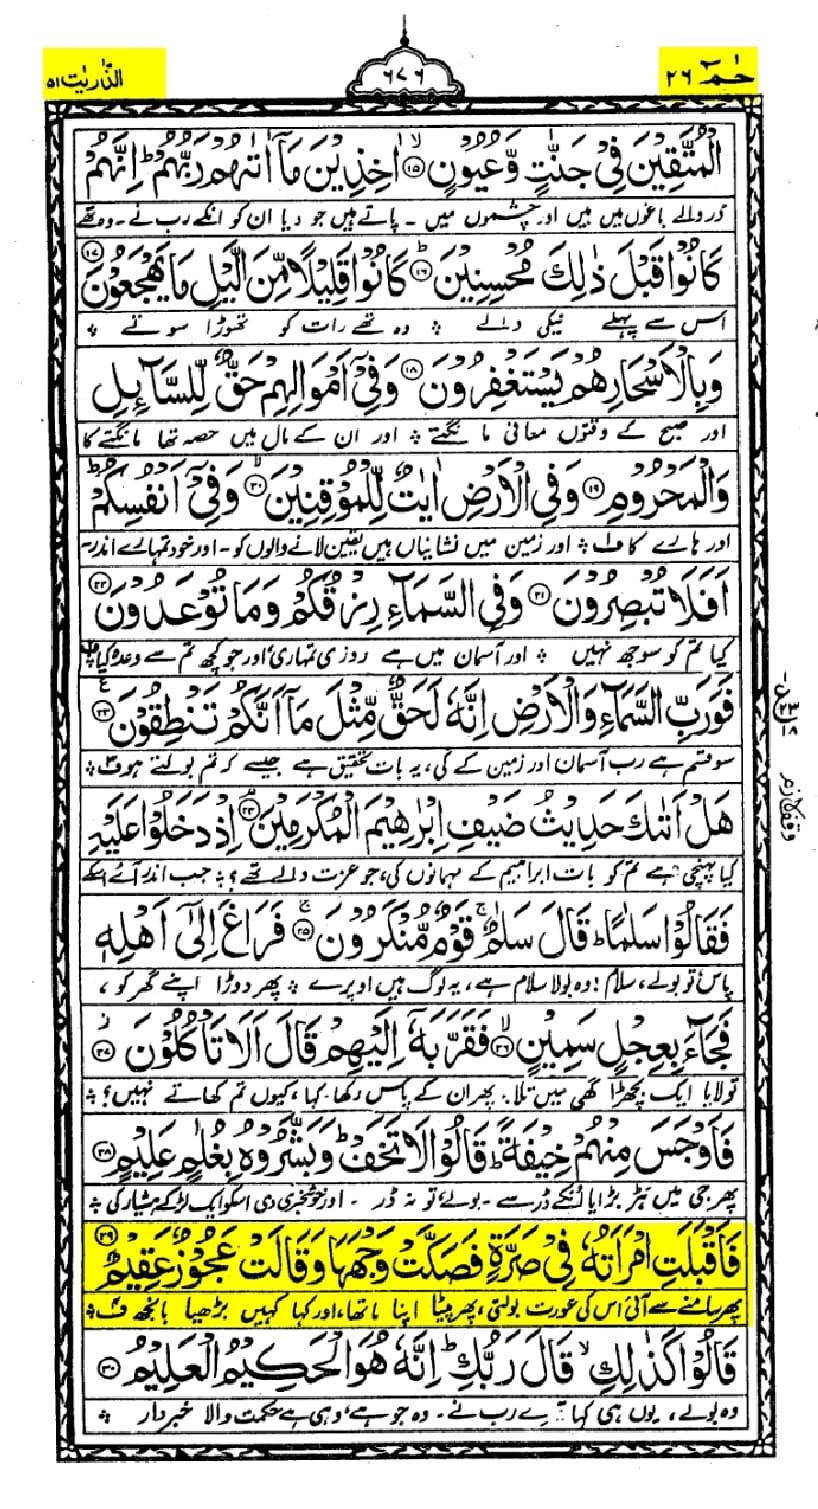 حٰمٓ ٢٦
٦٧٦
الذّٰریٰت ٥١
الْمُتَّقِيْنَ فِيْ جَنّٰتٍ وَّعُيُوْنٍ ۙ﴿۱۵﴾ اٰخِذِيْنَ مَاۤ اٰتٰىهُمْ رَبُّهُمْ ؕ اِنَّهُمْ
ڈر والے باغوں میں ہیں اور چشموں میں ۔ پاتے ہیں جو دیا ان کو انکے رب نے ۔ وہ تھے
كَانُوْا قَبْلَ ذٰلِكَ مُحْسِنِيْنَ ؕ﴿۱۶﴾ كَانُوْا قَلِيْلًا مِّنَ الَّيْلِ مَا يَهْجَعُوْنَ ﴿۱۷﴾
اس سے پہلے نیکی والے ؞ وہ تھے رات کو تھوڑا سوتے ؞
وَبِالْاَسْحَارِ هُمْ يَسْتَغْفِرُوْنَ ﴿۱۸﴾ وَفِيْۤ اَمْوَالِهِمْ حَقٌّ لِّلسَّآئِلِ
اور صبح کے وقتوں معافی مانگتے ؞ اور ان کے مال میں حصہ تھا مانگتے کا
وَالْمَحْرُوْمِ ﴿۱۹﴾ وَفِي الْاَرْضِ اٰيٰتٌ لِّلْمُوْقِنِيْنَ ۙ﴿۲۰﴾ وَفِيْۤ اَنْفُسِكُمْ ؕ
اور ہارے کا ف۱ ؞ اور زمین میں نشانیاں ہیں یقین لانے والوں کو ۔ اور خود تمہارے اندر ۔
اَفَلَا تُبْصِرُوْنَ ﴿۲۱﴾ وَفِي السَّمَآءِ رِزْقُكُمْ وَمَا تُوْعَدُوْنَ ﴿۲۲﴾
کیا تم کو سوجھ نہیں ؞ اور آسمان میں ہے روزی تمہاری اور جو کچھ تم سے وعدہ کیا
فَوَرَبِّ السَّمَآءِ وَالْاَرْضِ اِنَّهٗ لَحَقٌّ مِّثْلَ مَاۤ اَنَّكُمْ تَنْطِقُوْنَ ﴿۲۳﴾
سو قسم ہے رب آسمان اور زمین کے کی، یہ بات تحقیق ہے جیسے کہ تم بولتے ہو ؞
هَلْ اَتٰىكَ حَدِيْثُ ضَيْفِ اِبْرٰهِيْمَ الْمُكْرَمِيْنَ ۘ﴿۲۴﴾ اِذْ دَخَلُوْا عَلَيْهِ
کیا پہنچی ہے تم کو بات ابراہیم کے مہمانوں کی، جو عزت والے تھے ؟ ؞ جب اندر آئے اسکے
فَقَالُوْا سَلٰمًا ؕ قَالَ سَلٰمٌ ۚ قَوْمٌ مُّنْكَرُوْنَ ۚ﴿۲۵﴾ فَرَاغَ اِلٰۤى اَهْلِهٖ
پاس تو بولے، سلام ! وہ بولا سلام ہے، یہ لوگ ہیں اوپرے ؞ پھر دوڑا اپنے گھر کو ،
فَجَآءَ بِعِجْلٍ سَمِيْنٍ ۙ﴿۲۶﴾ فَقَرَّبَهٗۤ اِلَيْهِمْ قَالَ اَلَا تَاْكُلُوْنَ ۫﴿۲۷﴾
تو لایا ایک بچھڑا گھی میں تلا. پھر ان کے پاس رکھا ۔ کہا، کیوں تم کھاتے نہیں ؟ ؞
فَاَوْجَسَ مِنْهُمْ خِيْفَةً ؕ قَالُوْا لَا تَخَفْ ؕ وَبَشَّرُوْهُ بِغُلٰمٍ عَلِيْمٍ ﴿۲۸﴾
پھر جی میں ہڑبڑایا انکے ڈر سے ۔ بولے تو نہ ڈر ۔ اور خوشخبری دی اسکو ایک لڑکے ہشیار کی ؞
فَاَقْبَلَتِ امْرَاَتُهٗ فِيْ صَرَّةٍ فَصَكَّتْ وَجْهَهَا وَقَالَتْ عَجُوْزٌ عَقِيْمٌ ﴿۲۹﴾
پھر سامنے سے آئی اس کی عورت بولتی، پھر پیٹا اپنا ماتھا، اور کہا کہیں بڑھیا بانجھ ؞
قَالُوْا كَذٰلِكِ ۙ قَالَ رَبُّكِ ؕ اِنَّهٗ هُوَ الْحَكِيْمُ الْعَلِيْمُ ﴿۳۰﴾
وہ بولے، یوں ہی کہا تیرے رب نے ۔ وہ جو ہے، وہی ہے حکمت والا خبردار ؞